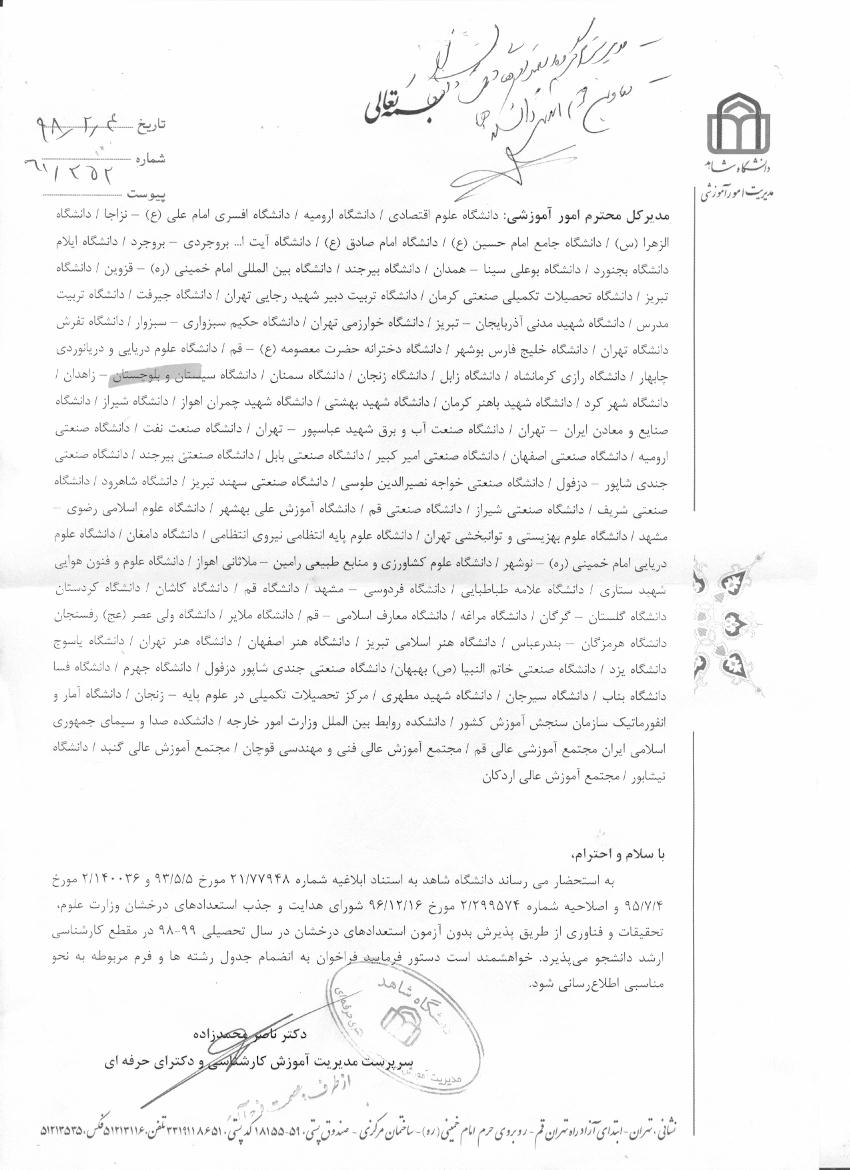 بسمه تعالی
دانشگاه شاهد
مدیریت امور آموزشی
تاریخ ۹۸/۲/۴
شماره ۶۱/۲۵۲
پیوست
مدیرکل محترم امور آموزشی: دانشگاه علوم اقتصادی / دانشگاه ارومیه / دانشگاه افسری امام علی (ع) – نزاجا / دانشگاه
الزهرا (س) / دانشگاه جامع امام حسین (ع) / دانشگاه امام صادق (ع) / دانشگاه آیت ا... بروجردی – بروجرد / دانشگاه ایلام
دانشگاه بجنورد / دانشگاه بوعلی سینا – همدان / دانشگاه بیرجند / دانشگاه بین المللی امام خمینی (ره) – قزوین / دانشگاه
تبریز / دانشگاه تحصیلات تکمیلی صنعتی کرمان / دانشگاه تربیت دبیر شهید رجایی تهران / دانشگاه جیرفت / دانشگاه تربیت
مدرس / دانشگاه شهید مدنی آذربایجان – تبریز / دانشگاه خوارزمی تهران / دانشگاه حکیم سبزواری – سبزوار / دانشگاه تفرش
دانشگاه تهران / دانشگاه خلیج فارس بوشهر / دانشگاه دخترانه حضرت معصومه (ع) – قم / دانشگاه علوم دریایی و دریانوردی
چابهار / دانشگاه رازی کرمانشاه / دانشگاه زابل / دانشگاه زنجان / دانشگاه سمنان / دانشگاه سیستان و بلوچستان – زاهدان /
دانشگاه شهر کرد / دانشگاه شهید باهنر کرمان / دانشگاه شهید بهشتی / دانشگاه شهید چمران اهواز / دانشگاه شیراز / دانشگاه
صنایع و معادن ایران – تهران / دانشگاه صنعت آب و برق شهید عباسپور – تهران / دانشگاه صنعت نفت / دانشگاه صنعتی
ارومیه / دانشگاه صنعتی اصفهان / دانشگاه صنعتی امیر کبیر / دانشگاه صنعتی بابل / دانشگاه صنعتی بیرجند / دانشگاه صنعتی
جندی شاپور – دزفول / دانشگاه صنعتی خواجه نصیرالدین طوسی / دانشگاه صنعتی سهند تبریز / دانشگاه شاهرود / دانشگاه
صنعتی شریف / دانشگاه صنعتی شیراز / دانشگاه صنعتی قم / دانشگاه آموزش علی بهشهر / دانشگاه علوم اسلامی رضوی –
مشهد / دانشگاه علوم بهزیستی و توانبخشی تهران / دانشگاه علوم پایه انتظامی نیروی انتظامی / دانشگاه دامغان / دانشگاه علوم
دریایی امام خمینی (ره) – نوشهر / دانشگاه علوم کشاورزی و منابع طبیعی رامین – ملاثانی اهواز / دانشگاه علوم و فنون هوایی
شهید ستاری / دانشگاه علامه طباطبایی / دانشگاه فردوسی – مشهد / دانشگاه قم / دانشگاه کاشان / دانشگاه کردستان
دانشگاه گلستان – گرگان / دانشگاه مراغه / دانشگاه معارف اسلامی – قم / دانشگاه ملایر / دانشگاه ولی عصر (عج) رفسنجان
دانشگاه هرمزگان – بندرعباس / دانشگاه هنر اسلامی تبریز / دانشگاه هنر اصفهان / دانشگاه هنر تهران / دانشگاه یاسوج
دانشگاه یزد / دانشگاه صنعتی خاتم النبیا (ص) بهبهان/ دانشگاه صنعتی جندی شاپور دزفول / دانشگاه جهرم / دانشگاه فسا
دانشگاه بناب / دانشگاه سیرجان / دانشگاه شهید مطهری / مرکز تحصیلات تکمیلی در علوم پایه – زنجان / دانشگاه آمار و
انفورماتیک سازمان سنجش آموزش کشور / دانشکده روابط بین الملل وزارت امور خارجه / دانشکده صدا و سیمای جمهوری
اسلامی ایران مجتمع آموزشی عالی قم / مجتمع آموزش عالی فنی و مهندسی قوچان / مجتمع آموزش عالی گنبد / دانشگاه
نیشابور / مجتمع آموزش عالی اردکان
با سلام و احترام،
به استحضار می رساند دانشگاه شاهد به استناد ابلاغیه شماره ۲۱/۷۷۹۴۸ مورخ ۹۳/۵/۵ و ۲/۱۴۰۰۳۶ مورخ
۹۵/۷/۴ و اصلاحیه شماره ۲/۲۹۹۵۷۴ مورخ ۹۶/۱۲/۱۶ شورای هدایت و جذب استعدادهای درخشان وزارت علوم،
تحقیقات و فناوری از طریق پذیرش بدون آزمون استعدادهای درخشان در سال تحصیلی ۹۹-۹۸ در مقطع کارشناسی
ارشد دانشجو می‌پذیرد. خواهشمند است دستور فرمایید فراخوان به انضمام جدول رشته ها و فرم مربوطه به نحو
مناسبی اطلاع‌رسانی شود.
دانشگاه شاهد
دکتر ناصر محمدزاده
سرپرست مدیریت آموزش کارشناسی و دکترای حرفه ای
از طرف
نشانی: تهران - ابتدای آزاد راه تهران قم - روبروی حرم امام خمینی (ره) - ساختمان مرکزی - صندوق پستی: ۵۹-۱۸۱۵۵ کد پستی: ۳۳۱۹۱۱۸۶۵۱ تلفن: ۵۱۲۱۳۱۱۶ فکس: ۵۱۲۱۳۵۳۵